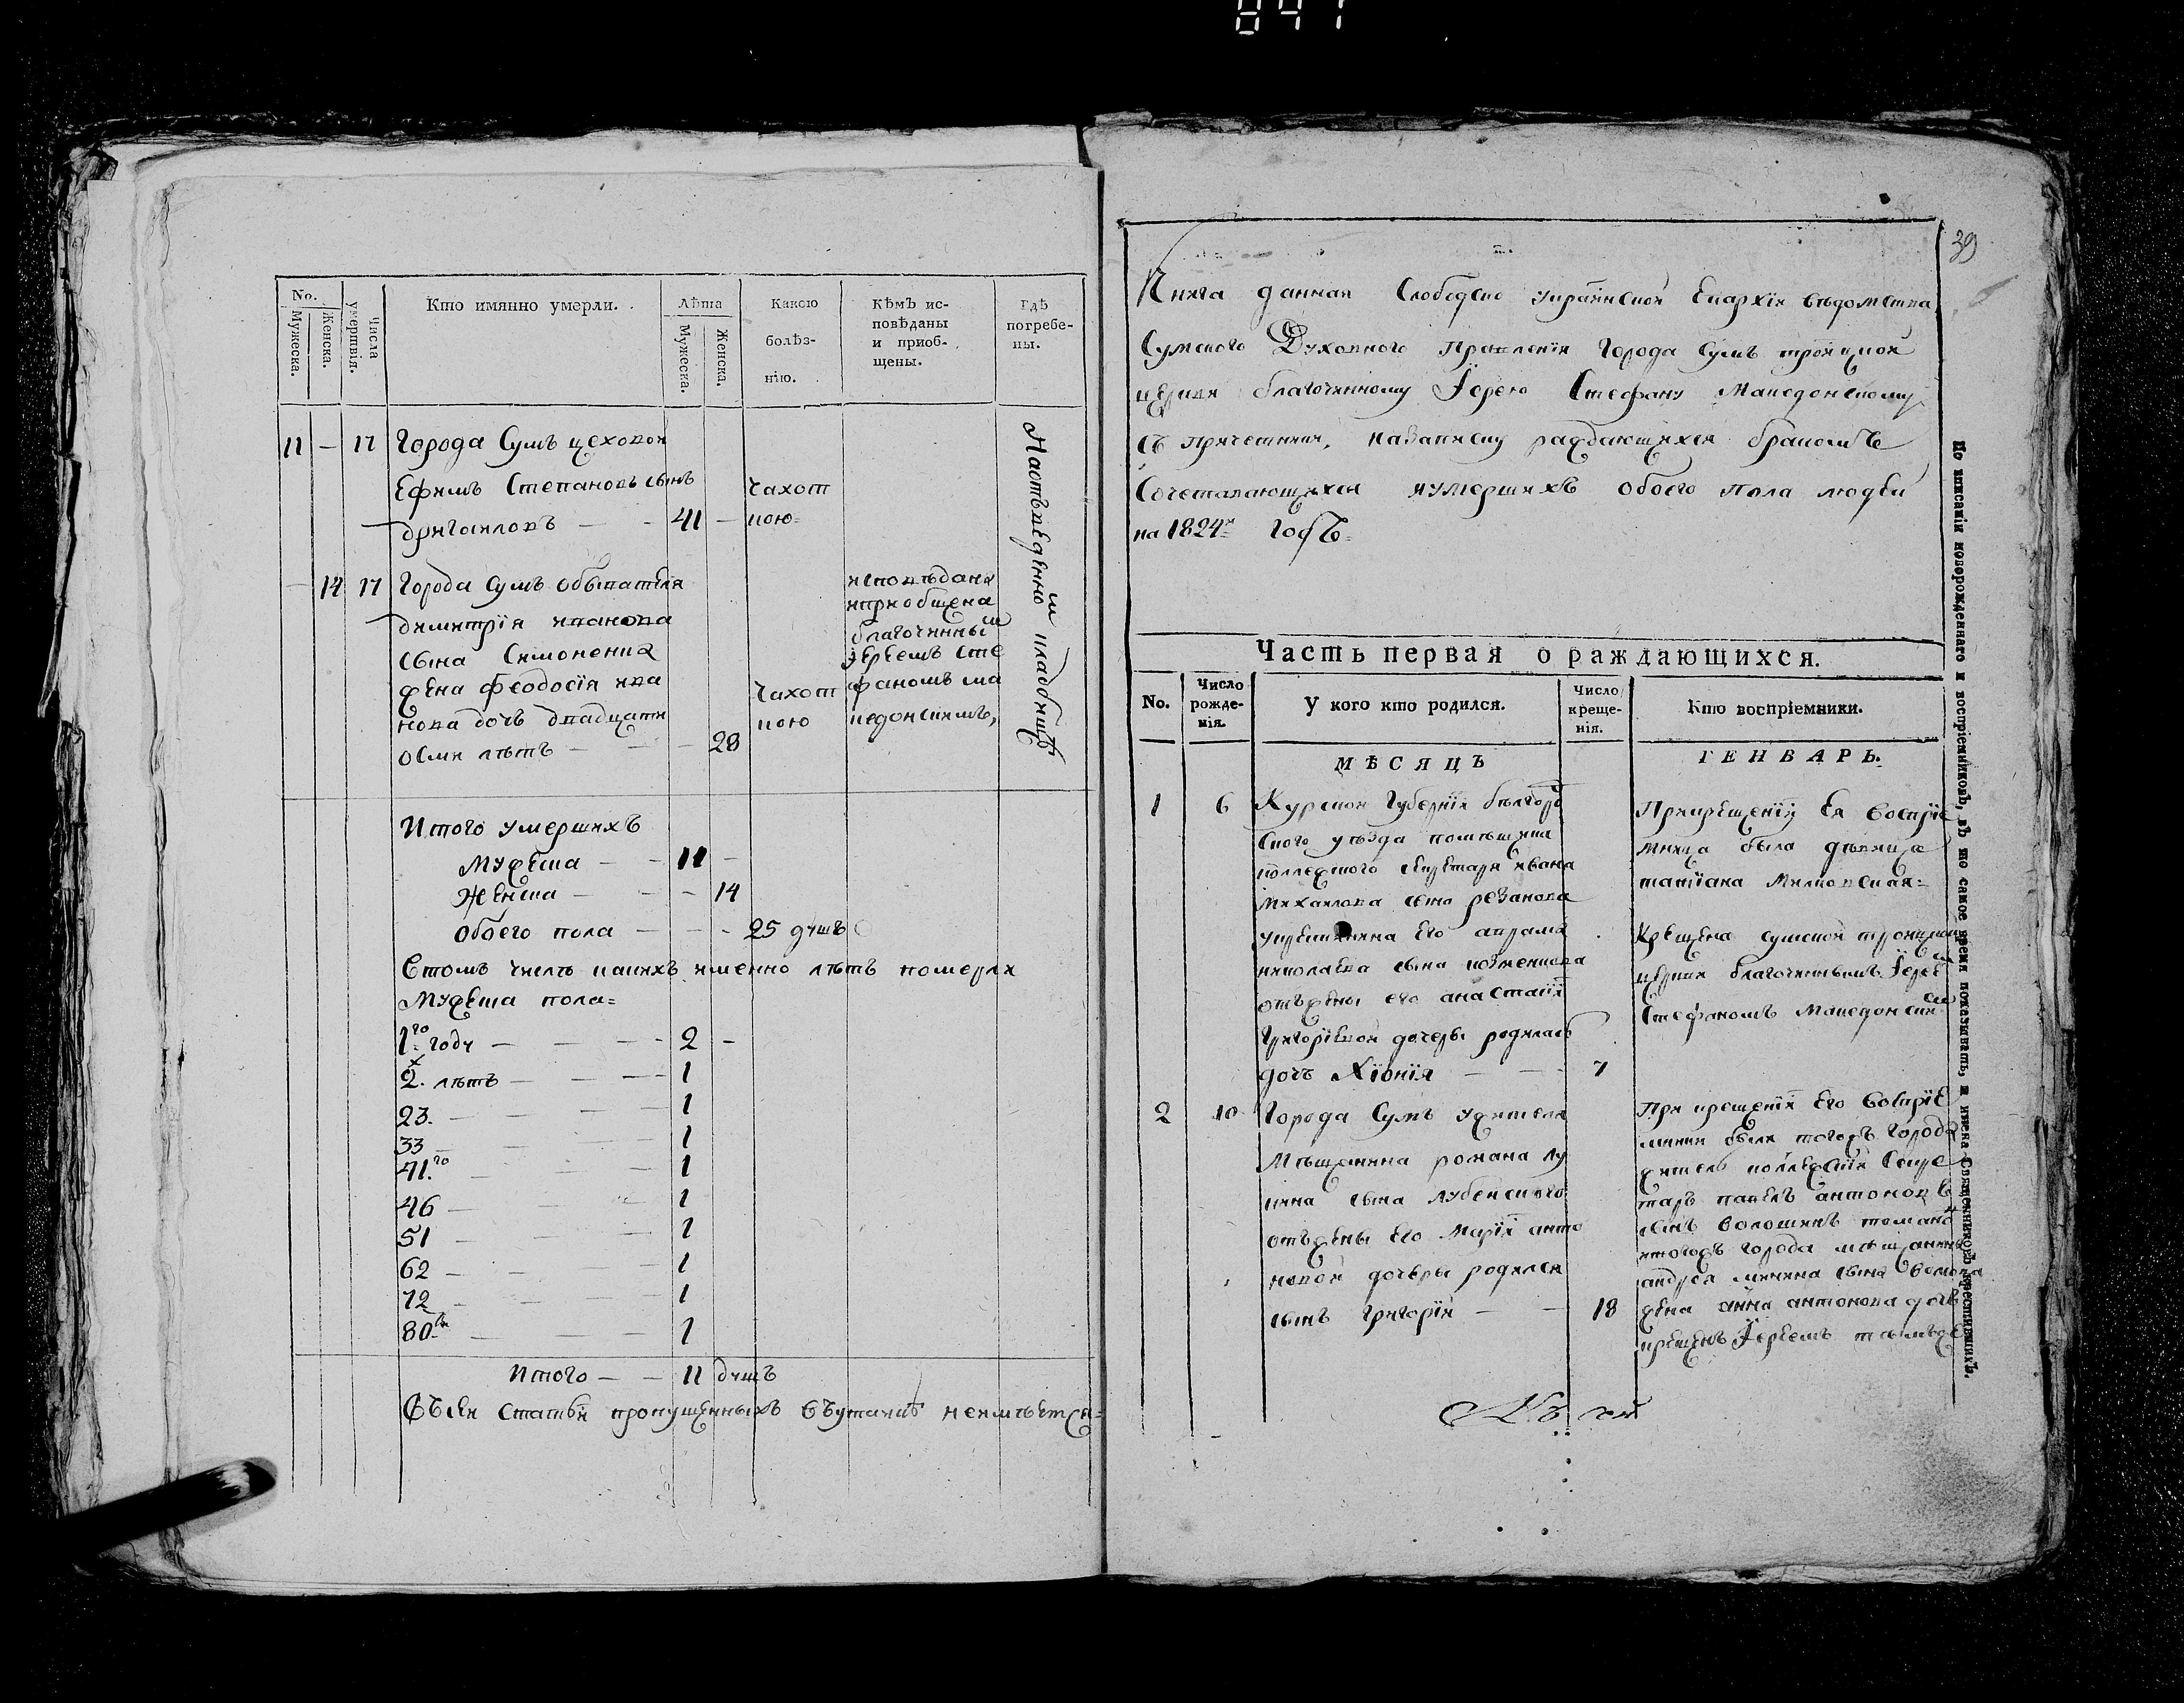 No.
Мужеска.
Женска.
Числа умертвія.
Кто имянно умерли.
Лѣта
Мужеска.
Женска.
Какою болѣз-
нію.
Кѣмъ ис-
повѣданы
и приоб-
щены.
Гдѣ
погребе-
ны.
11 — 17 Города Сумъ цеховой
Ефимъ Степановъ сынъ
— 41 —
Чахот
кою
На отведенном кладбищѣ
— 14 17 Города Сумъ обывателя
димитрія иванова
сына Симоненка
жена феодосія ива
нова дочь двадцати
осми лѣтъ — — 28
Чахот
кою
исповѣдана
ипріобщена
благочиннымъ
іереемъ Сте
фаномъ ма
кедонскимъ,
Итого умершихъ
мужеска — — 11 —
женска — — 14
обоего пола — — 25 душъ
Втомъ числѣ какихъ именно лѣтъ померли
Мужеска пола
1го году — — — 2 —
2х лѣтъ — — — 1
23 — — — 1
33 — — — 1
41го — — — 1
46 — — — 1
51 — — — 1
62 — — — 1
72 — — — 1
80ти — — — 1
Итого — — 11 душъ
Въсей Статьи пропущенныхъ въутайкѣ неимѣется
39
Книга данная Слободско украинской Епархіи вѣдомства
Сумского Духовного Правленія города Сумъ троицкой
церкви благочинному Іерею Стефану Македонскому
съ причетники, назаписку раждающихся бракомъ
Сочетавающихся иумершихъ обоего пола людей
на 1824й годъ
Часть первая о раждающихся.
No.
Число
рожде-
нія.
У кого кто родился.
Число
креще-
нія.
Кто воспріемники.
МѢСЯЦЪ
ГЕНВАРЬ.
1 6 Курской Губерніи бѣлгород
ского уѣзда помѣщика
коллежского секретаря ивана
Михайлова сына резанова
укрестьянина Его аврама
николаева сына
отъжены его анастасіи
Григоріевой дочери родилась
дочь Хіонія — — 7
Прикрещеніи Ея воспріе
мница была дѣвица
татіана
Крещена сумской троицкой
церкви благочиннымъ Іереемъ
Стефаномъ Македонскимъ
2 10 Города Сумъ жителя
мѣщанина романа лу
кина сына лубенского
отъжены Его маріи анто
новой дочери родился
сынъ григорій — — 18
При крещеніи Его воспріе
мники были тогожъ города
житель коллежскій Секре
тарь павелъ антоновъ
сынъ волошинъ
итогожъ города мѣщанина
сына
жена анна антонова дочь
крещенъ Іереемъ тѣмъже
По писаніи новорожденнаго и воспріемниковъ, въ то самое время показывать, и имена Священниковъ крестившихъ.